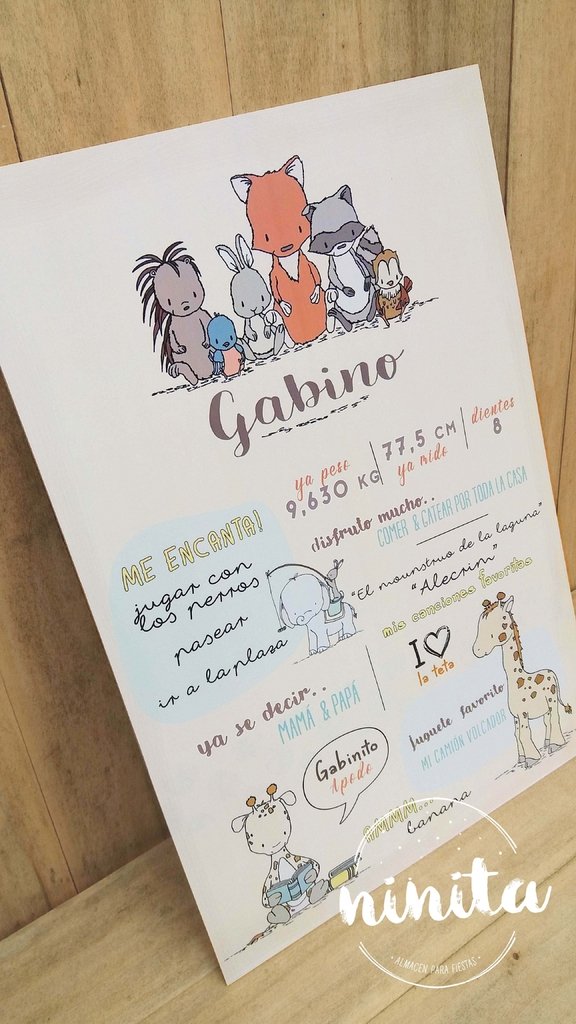 Gabino
ya peso
9,630 KG
77,5 CM
ya mido
dientes
8
disfruto mucho..
COMER & GATEAR POR TODA LA CASA
ME ENCANTA!
jugar con
los perros
pasear
ir a la plaza
"El mounstruo de la laguna"
"Alecrim"
mis canciones favoritas
I
la teta
ya se decir..
MAMÁ & PAPÁ
juguete favorito
MI CAMIÓN VOLCADOR
Gabinito
Apodo
AMMM...
banana
ninita
· ALMACEN PARA FIESTAS ·